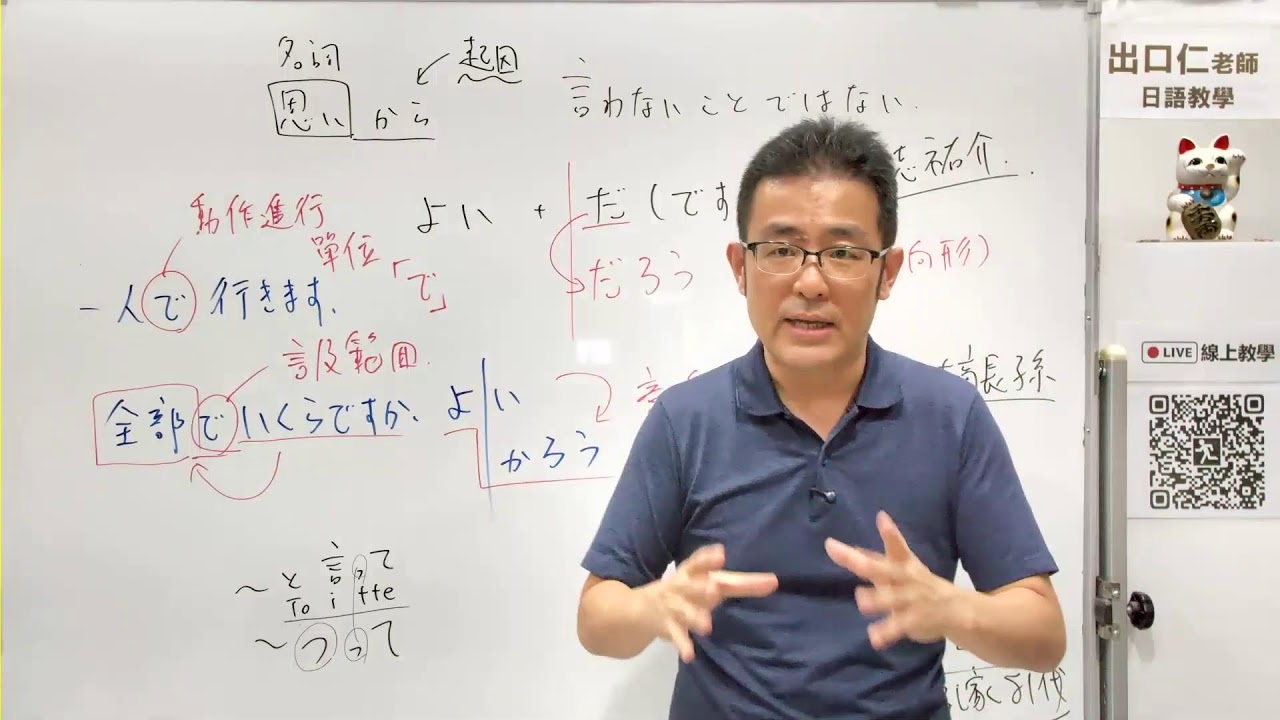 名詞
起因
思い から
言わないことではない.
志祐介.
動作進行
單位「で」
よい + だ(です
だろう
向形)
一人で行きます.
言及範囲.
全部でいくらですか.
よい
かろう
嫡長孫
〜と言って
To i tte
〜つって
出口仁老師
日語教學
LIVE 線上教學